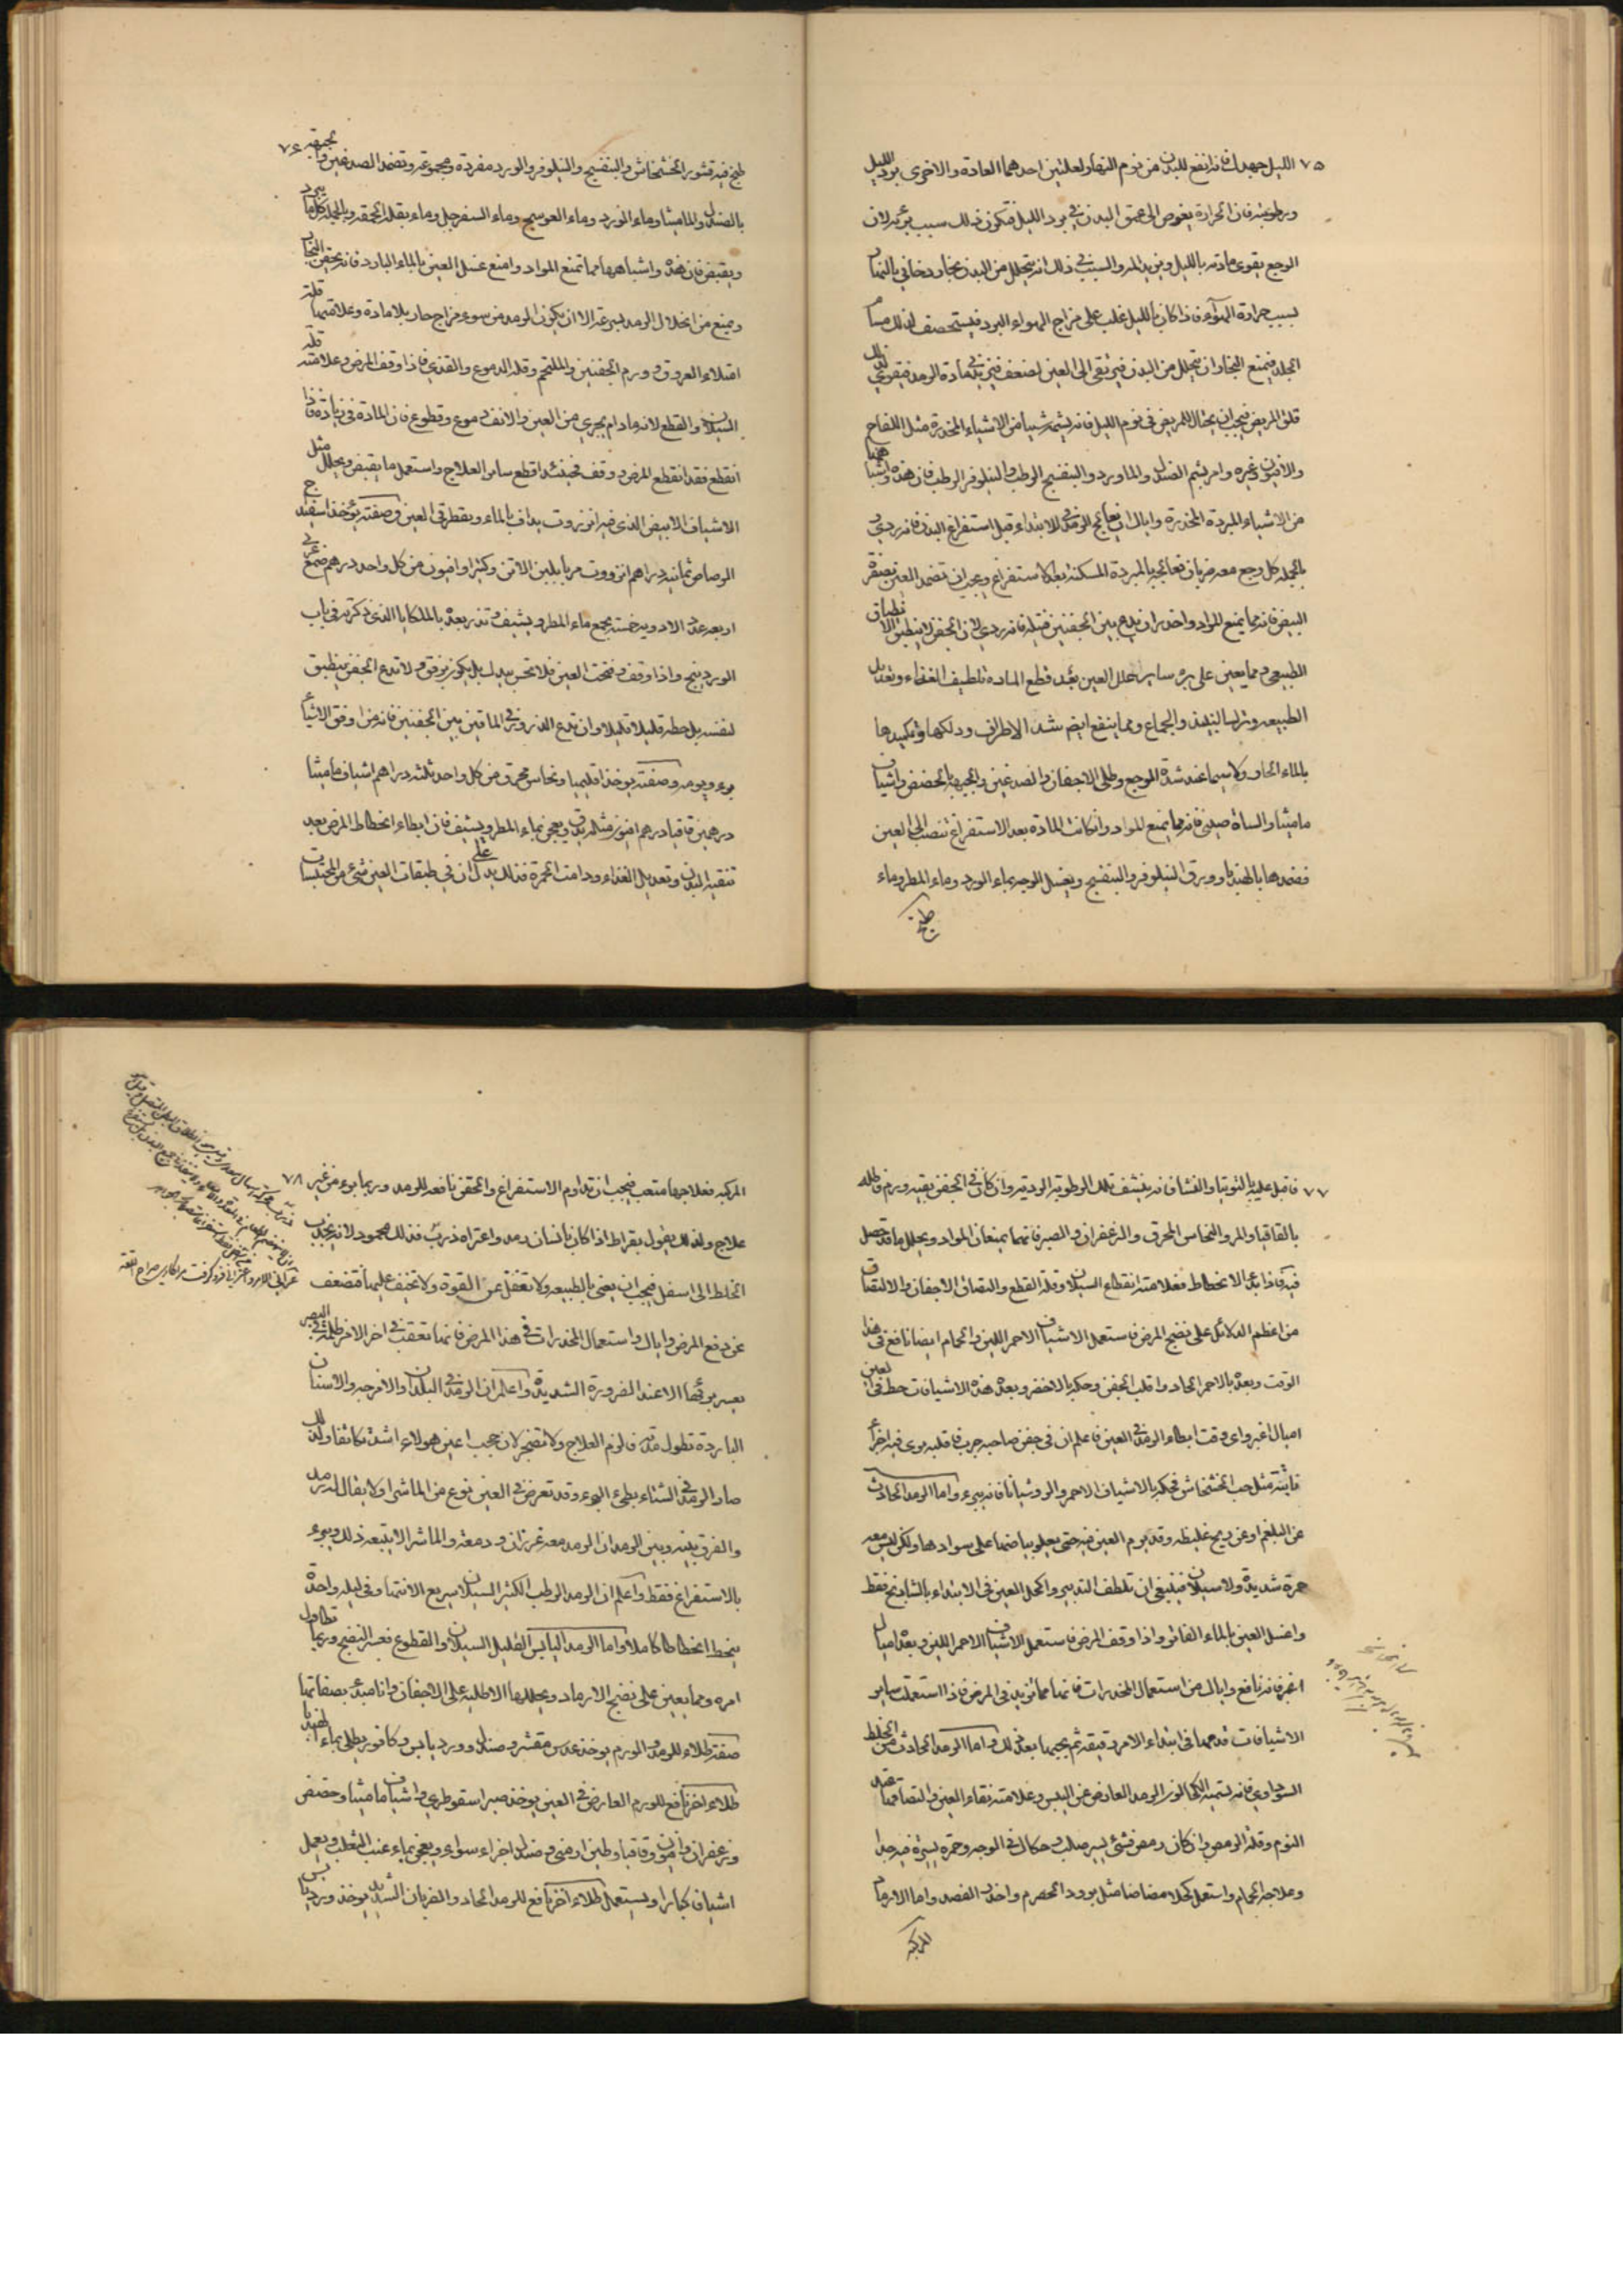 ٧٥ الليل جهدك فانه انفع للبدن من نوم النهار لعلتين احدهما العادة والاخرى برد الليل
ورطوبته فان الحرارة يغوص الى عمق البدن في برد الليل فتكون ذلك سبب برئه لان
الوجع يقوى مادته بالليل ويزيد المه والسبب في ذلك انه يتحلل من البدن بخار دخاني بالنهار
لسبب حرارة الهواء فاذا كان بالليل غلب على مزاج الهواء البرد فيستحصف لذلك مسام
الجلد فيمنع البخار ان يتحلل من البدن فيرتقي الى العين لضعف فيزيد في مادة الرمد فيقوي لذلك
قلق المريض فيجب ان يحتال للمريض في نوم الليل فانه يشمه شيأ من الاشياء المخدرة مثل اللفاح
والافيون وغيره وامر بشم الصندل والماورد والبنفسج الرطب والنيلوفر الرطب فان هذه واشباهها
من الاشياء المبردة المخدرة واياك ان تعالج الرمد في الابتداء قبل استفراغ البدن فانه ردي
بالجملة كل وجع معه ضربان تعالجه بالمبردة المسكنة بعد الاستفراغ ويجب ان تضمد العين بصفرة
البيض فانه مما يمنع المواد واحذر ان يدع بين الجفنين فتيلة فانه ردي لان الجفن لا ينطبق الانطباق
الطبيعي ومما يعين على برء ساير علل العين بعد قطع المادة تلطيف الغذاء وتعديل
الطبيعه وترك النبيذ والجماع ومما ينفع ايضا شد الاطراف ودلكها وتكميدها
بالماء الحار ولا سيما عند شدة الوجع وطلى الاجفان والصدغين والجبهة بالحضض واشياف
ماميثا والساذ صيني فانه مما يمنع المواد وان كانت المادة بعد الاستفراغ تنصب الى العين
فضمدها بالهندبا وورق النيلوفر والبنفسج ويغسل الوجه بماء الورد وماء المطر وماء
طبخ
طبخ فيه قشور الخشخاش والبنفسج والنيلوفر والورد مفردة ومجموعة وتضمد الصدغين والجبهة ٧٦
بالصندل والماميثا وماء الورد وماء العوسج وماء السفرجل وماء بقلة الحمقه وبالجملة كل ما يبرد
ويقبض فان هذه واشباهها مما تمنع المواد وامنع غسل العين بالماء البارد فانه يحقن البخار
ويمنع من انحلال الرمد بسرعة الا ان يكون الرمد من سوء مزاج حار بلا مادة وعلامتها قلة
امتلاء العروق وورم الجفنين والملتحم وقلة الدموع والقذي فاذا وقف المرض وعلامته قلة
السيلان والقطع لانه ما دام يجري من العين والانف دموع وقطوع فان المادة في زيادة فاذا
انقطع فقد انقطع المرض ووقف فحينئذ اقطع ساير العلاج واستعمل ما يقبض ويحلل مثل
الاشياف الابيض الذي فيه انزروت يداف بالماء ويقطر في العين وصفته يؤخذ اسفيداج
الرصاص ثمانيه دراهم انزروت مربا بلبن الاتن وكثيرا وافيون من كل واحد درهم صمغ عربي
اربعه عدد الادويه خمسة يجمع بماء المطر ويشيف وتذر بعده بالملكايا الذي ذكرته في باب
الوردينج واذا وقف وفتحت العين فلا تحس بيدك بل يكون برفق ولا تدع الجفن ينطبق
لنفسه بل حطه قليلا قليلا وان تدع الذرور في الماقين بين الجفنين فانه من اوفق الاشياء
برء ويومه وصفته يوخذ اقليميا ونحاس محرق من كل واحد ثلثه دراهم اشياف ماميثا
درهمين قاقيا درهم افيون مثله يدق ويعجن بماء المطر ويشيف فان ابطاء انحطاط المرض بعد
تنقية البدن وتعديل الغذاء ودامت الحمرة فذلك يدل على ان في طبقات العين شئ من المحتبسات
٧٧ فاقبل عليه بالتوتيا والنشا فانه ينشف تلك الرطوبة الردية وان كان في الجفن بقيه ورم فاطله
بالقاقيا والمر والنحاس المحرق والزعفران والصبر فانهما يمنعان المواد ويحلل ما قد حصل
فيه فاذا بدء الانحطاط فعلامته انقطاع السيلان وقلة القطع والتصاق الاجفان والالتصاق
من اعظم الدلائل على نضج المرض فاستعمل الاشياف الاحمر اللين والحمام ايضا نافع في هذا
الوقت وبعده بالاحمر الحاد واقلب الجفن وحكه بالاخضر وبعد هذه الاشيافات حط في العين
اميال اغبر واي وقت ابطاء الرمد في العين فاعلم ان في جفن صاحبه جرب فاقلبه يرى فيه اجزاء
ناتئة مثل حب الخشخاش فحكه بالاشياف الاحمر والروشنايا فانه يبرء واما الرمد الحادث
عن البلغم او عن ريح غليظه وقد يرم العين فيه حتى يعلو بياضها على سوادها ولكن ليس معه
حمرة شديدة ولا سيلان فينبغي ان تلطف التدبير واكحل العين في الابتداء بالشادنج فقط
واغسل العين بالماء الفاتر واذا وقف المرض فاستعمل الاشياف الاحمر اللين وبعده اميال
اغبر فانه نافع واياك من استعمال المخدرات فانها مما تزيد في المرض فاذا استعملت ساير
الاشيافات قدمها في ابتداء الامر رقيقة ثم يجيئها بعد ذلك واما الرمد الحادث من الخلط
السوداوي فانه يسميه الكحالون الرمد العارض عن اليبس وعلامته نقاء العين والتصاقها عند
النوم وقلة الرمص وان كان رمص فشئ يسير صلب وحكاك في الوجه وحمرة يسيرة فيه جدا
وعلاجه الحمام واستعمل كحلا مضاضا مثل برود الحصرم واحذر الفصد واما الارماد
المركبة
المركبة فعلاجها متعب فيجب ان تداوم الاستفراغ والحقن نافعه للرمد وربما برء من غير ٧٨
علاج ولذلك يقول بقراط اذا كان بانسان رمد واعتراه ذرب فذلك محمود لانه يجذب
الخلط الى اسفل فيجب ان يعنى بالطبيعه ولا تغفل عن القوة ولا تخيف عليها فتضعف
عن دفع المرض واياك واستعمال المخدرات في هذا المرض فانها تعقب في اخر الامر ظلمة في البصر
يعسر برؤها الا عند الضرورة الشديدة واعلم ان الرمد في البلدان والامزجه والاسنان
الباردة تطول مدته فالزم العلاج ولا تضجر لان حجب اعين هولاء اشد تكاثفا ولذلك
صار الرمد في الشتاء بطئ البرء وقد تعرض في العين نوع من الماشرا ولا يقال له رمد
والفرق بينه وبين الرمد ان الرمد معه غرزان ودمعة والماشرا لا يتبعه ذلك ويبرء
بالاستفراغ فقط واعلم ان الرمد الرطب الكثير السيلان سريع الانتها وفي ليلة واحدة
ينحط انحطاطا كاملا واما الرمد اليابس القليل السيلان والقطوع فعسر النضج وربما تطاول
امره ومما يعين على نضج الارماد ويحللها الاطلية على الاجفان وانا مبدء بصفاتها
صفة طلاء للرمد والورم يوخذ عدس مقشر وصندل وورد يابس وكافور يطلى بماء الهندبا
طلاء اخر نافع للورم العارض في العين يوخذ صبر اسقوطري واشياف ماميثا وحضض
وزعفران وافيون وقاقيا وطين ارمني وصندل اجزاء سواء ويعجن بماء عنب الثعلب ويعمل
اشياف كبارا ويستعمل طلاء اخر نافع للرمد الحاد والضربان الشديد يوخذ ورد يابس